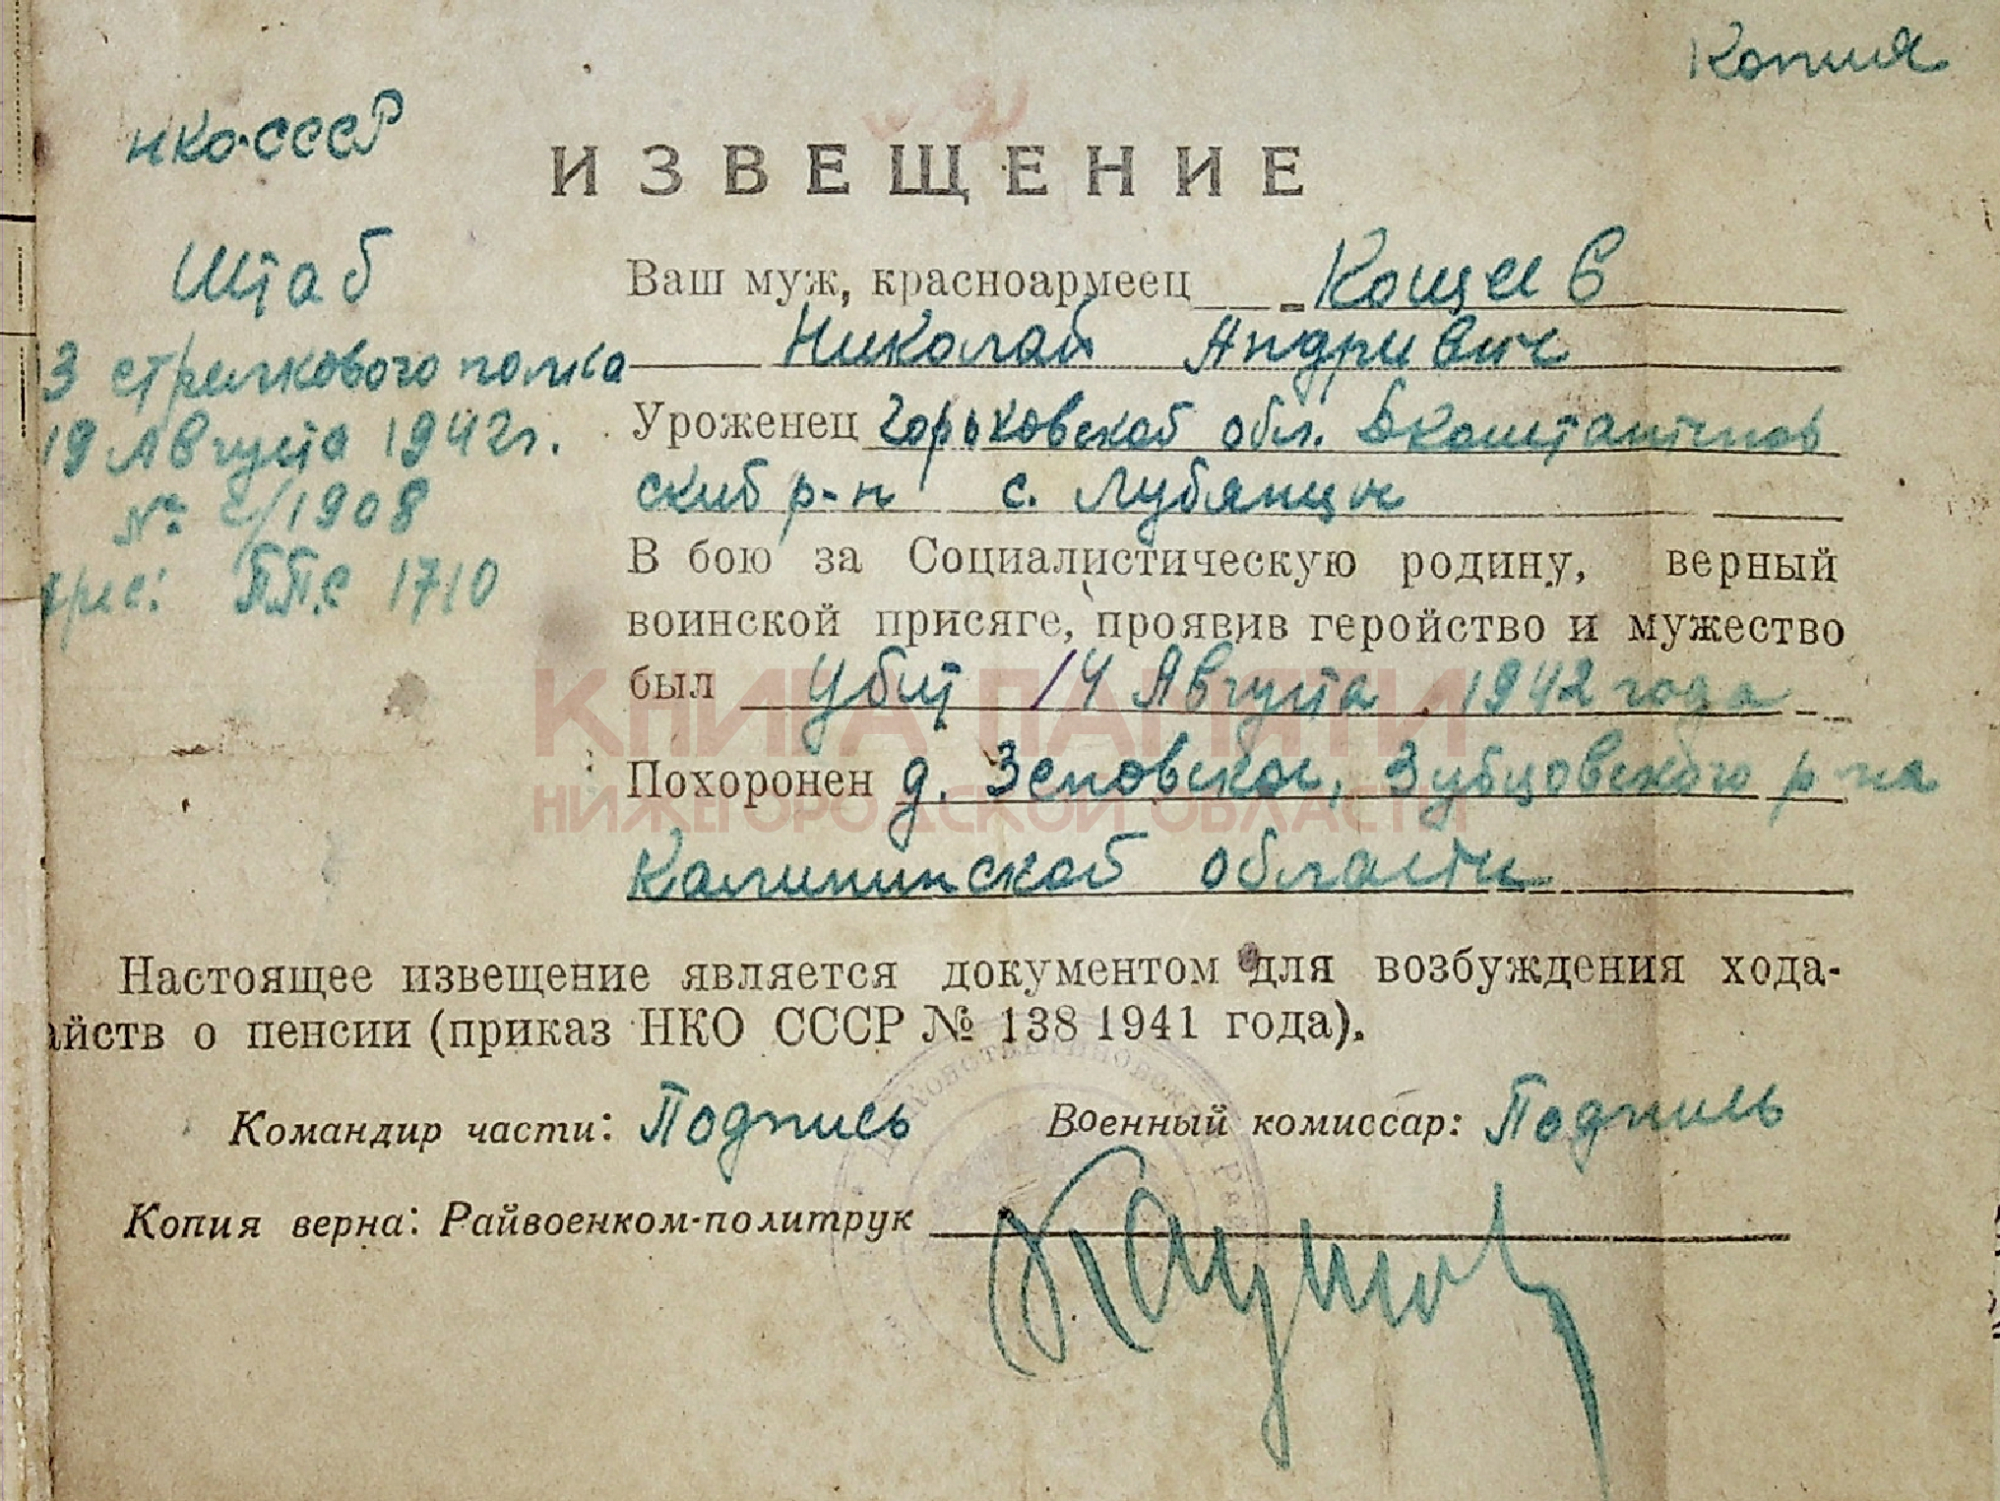 Копия
НКО-СССР
ИЗВЕЩЕНИЕ
Штаб
Ваш муж, красноармеец Кощеев
Николай Андривич
3 стрелкового полка
19 Августа 1942г.
Уроженец Горьковской обл. Дконстантинов
ский р-н с. Лубянцы
№ 2/1908
ППС 1710
В бою за Социалистическую родину, верный
воинской присяге, проявив геройство и мужество
был убит 14 Августа 1942 года
КНИГА ПАМЯТИ
НИЖЕГОРОДСКОЙ ОБЛАСТИ
Похоронен д. Зеновское, Зубцовского р-на
Калининской области
Настоящее извещение является документом для возбуждения хода-
айств о пенсии (приказ НКО СССР № 138 1941 года).
Командир части: Подпись Военный комиссар: Подпись
Копия верна: Райвоенком-политрук